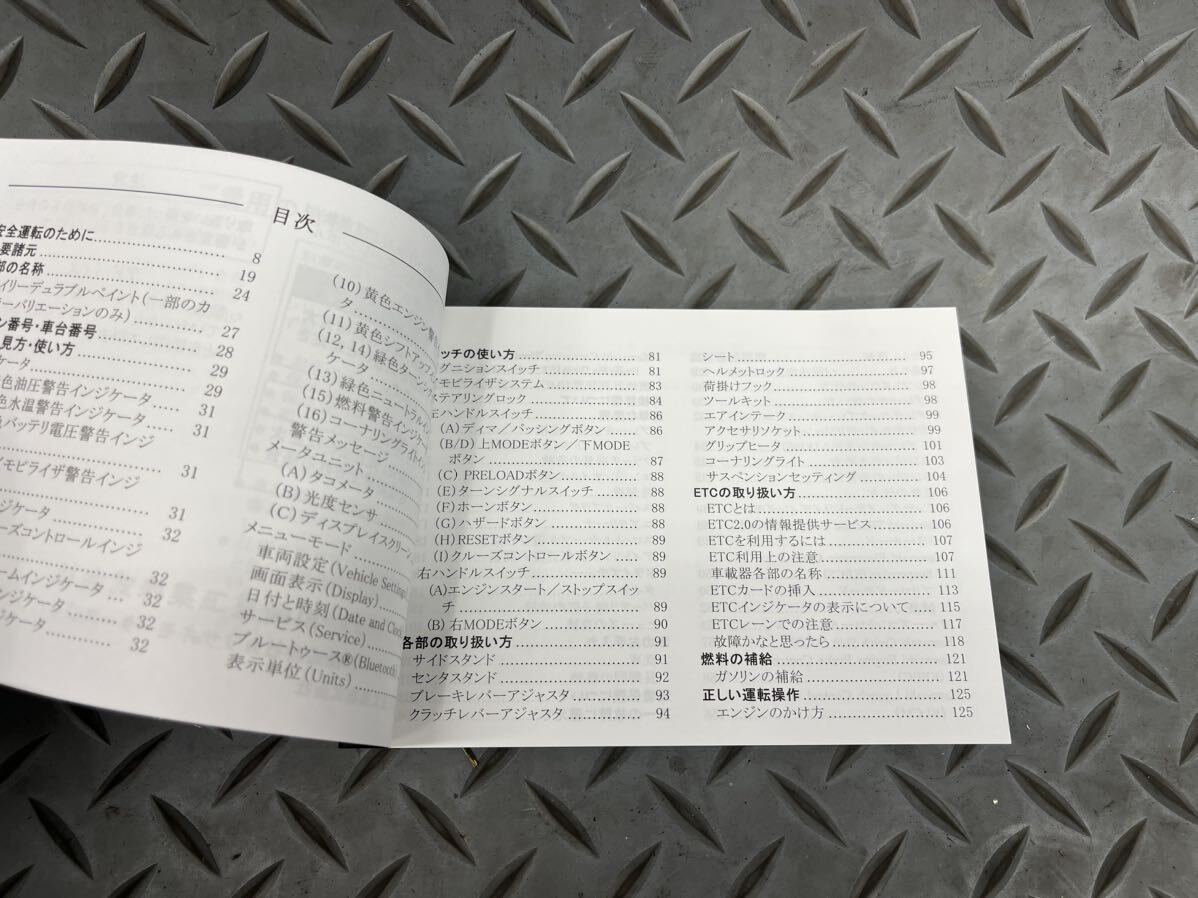 目次
安全運転のために 8
要諸元 19
部の名称 24
イリーデュラブルペイント(一部のカ
ラーバリエーションのみ) 27
ン番号・車台番号 28
見方・使い方 29
ケータ 29
色油圧警告インジケータ 31
色水温警告インジケータ 31
バッテリ電圧警告インジ
31
イモビライザ警告インジ
31
ジケータ 32
ーズコントロールインジ
32
ームインジケータ 32
ンジケータ 32
ケータ 32
(10)黄色エンジン警
タ
(11)黄色シフトアップ
(12, 14)緑色ターンシ
ケータ
(13)緑色ニュートラル
(15)燃料警告インジケー
(16)コーナリングライトイン
警告メッセージ
メータユニット
(A)タコメータ
(B)光度センサ
(C)ディスプレイスクリーン
メニューモード
車両設定(Vehicle Settings)
画面表示(Display)
日付と時刻(Date and Clock
サービス(Service)
ブルートゥース®(Bluetooth
表示単位(Units)
ッチの使い方 81
グニションスイッチ 81
モビライザシステム 83
ステアリングロック 84
左ハンドルスイッチ 86
(A)ディマ/パッシングボタン 86
(B/D)上MODEボタン/下MODE
ボタン 87
(C) PRELOADボタン 88
(E)ターンシグナルスイッチ 88
(F)ホーンボタン 88
(G)ハザードボタン 88
(H)RESETボタン 89
(I)クルーズコントロールボタン 89
右ハンドルスイッチ 89
(A)エンジンスタート/ストップスイッ
チ 89
(B)右MODEボタン 90
各部の取り扱い方 91
サイドスタンド 91
センタスタンド 92
ブレーキレバーアジャスタ 93
クラッチレバーアジャスタ 94
シート 95
ヘルメットロック 97
荷掛けフック 98
ツールキット 98
エアインテーク 99
アクセサリソケット 99
グリップヒータ 101
コーナリングライト 103
サスペンションセッティング 104
ETCの取り扱い方 106
ETCとは 106
ETC2.0の情報提供サービス 106
ETCを利用するには 107
ETC利用上の注意 107
車載器各部の名称 111
ETCカードの挿入 113
ETCインジケータの表示について 115
ETCレーンでの注意 117
故障かなと思ったら 118
燃料の補給 121
ガソリンの補給 121
正しい運転操作 125
エンジンのかけ方 125